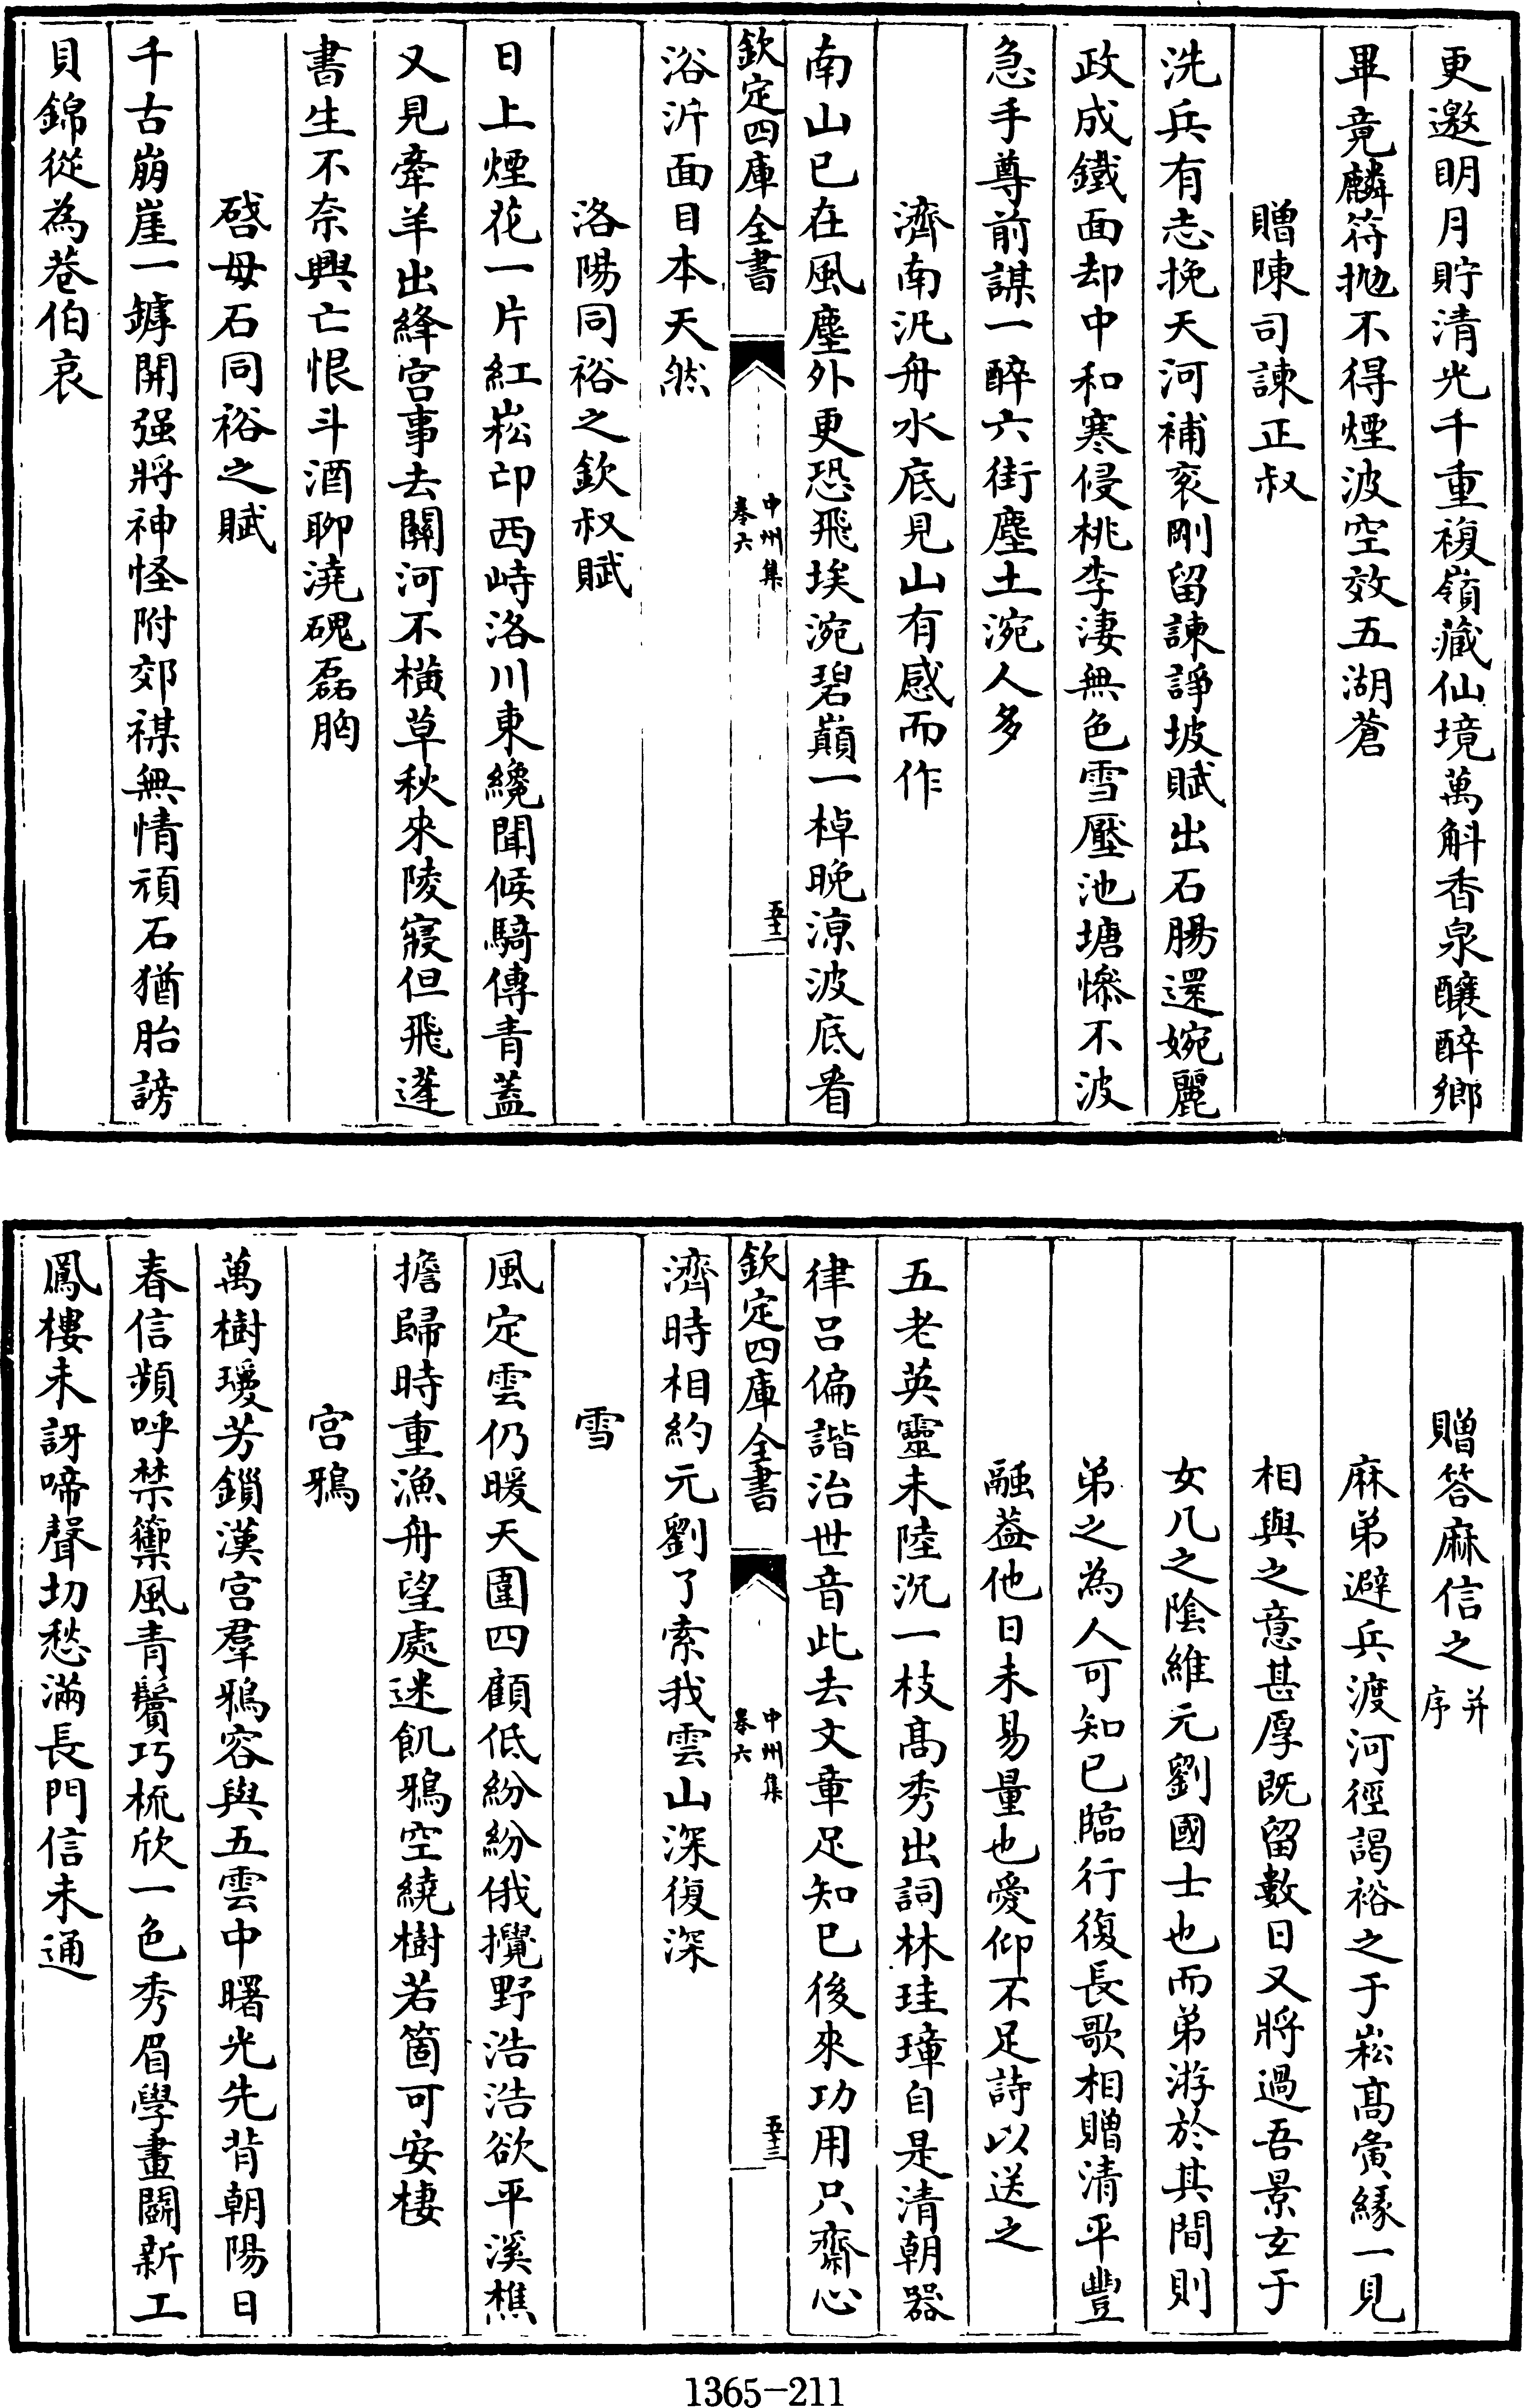 更邀明月貯清光千重複嶺藏仙境萬斛香泉釀醉鄉
畢竟麟符抛不得煙波空效五湖蒼
贈陳司諫正叔
洗兵有志挽天河補衮剛留諫諍坡賦出石腸還婉麗
政成鐵面却中和寒侵桃李淒無色雪壓池塘慘不波
急手尊前謀一醉六街塵土涴人多
濟南汎舟水底見山有感而作
南山已在風塵外更恐飛埃涴碧巔一棹晚涼波底看
欽定四庫全書
中州集
卷六
五十二
浴沂面目本天然
洛陽同裕之欽叔賦
日上煙花一片紅崧邙西峙洛川東纔聞候騎傳青蓋
又見牽羊出絳宮事去關河不橫草秋來陵寢但飛蓬
書生不奈興亡恨斗酒聊澆磈磊胷
啓母石同裕之賦
千古崩崖一罅開强將神怪附郊禖無情頑石猶胎謗
貝錦從為巷伯哀
贈答麻信之并序
麻弟避兵渡河徑謁裕之于崧高夤緣一見
相與之意甚厚既留數日又將過吾景玄于
女几之陰維元劉國士也而弟游於其間則
弟之為人可知已臨行復長歌相贈清平豐
融葢他日未易量也愛仰不足詩以送之
五老英靈未陸沉一枝高秀出詞林珪璋自是清朝器
律呂偏諧治世音此去文章足知已後來功用只齋心
欽定四庫全書
中州集
卷六
五十三
濟時相約元劉了索我雲山深復深
雪
風定雲仍暖天圍四顧低紛紛俄攪野浩浩欲平溪樵
擔歸時重漁舟望處迷飢鴉空繞樹若箇可安棲
宮鴉
萬樹瓊芳鎻漢宮羣鴉容與五雲中曙光先背朝陽日
春信頻呼禁籞風青鬢巧梳欣一色秀眉學畫鬭新工
鳳樓未訝啼聲切愁滿長門信未通
1365-211